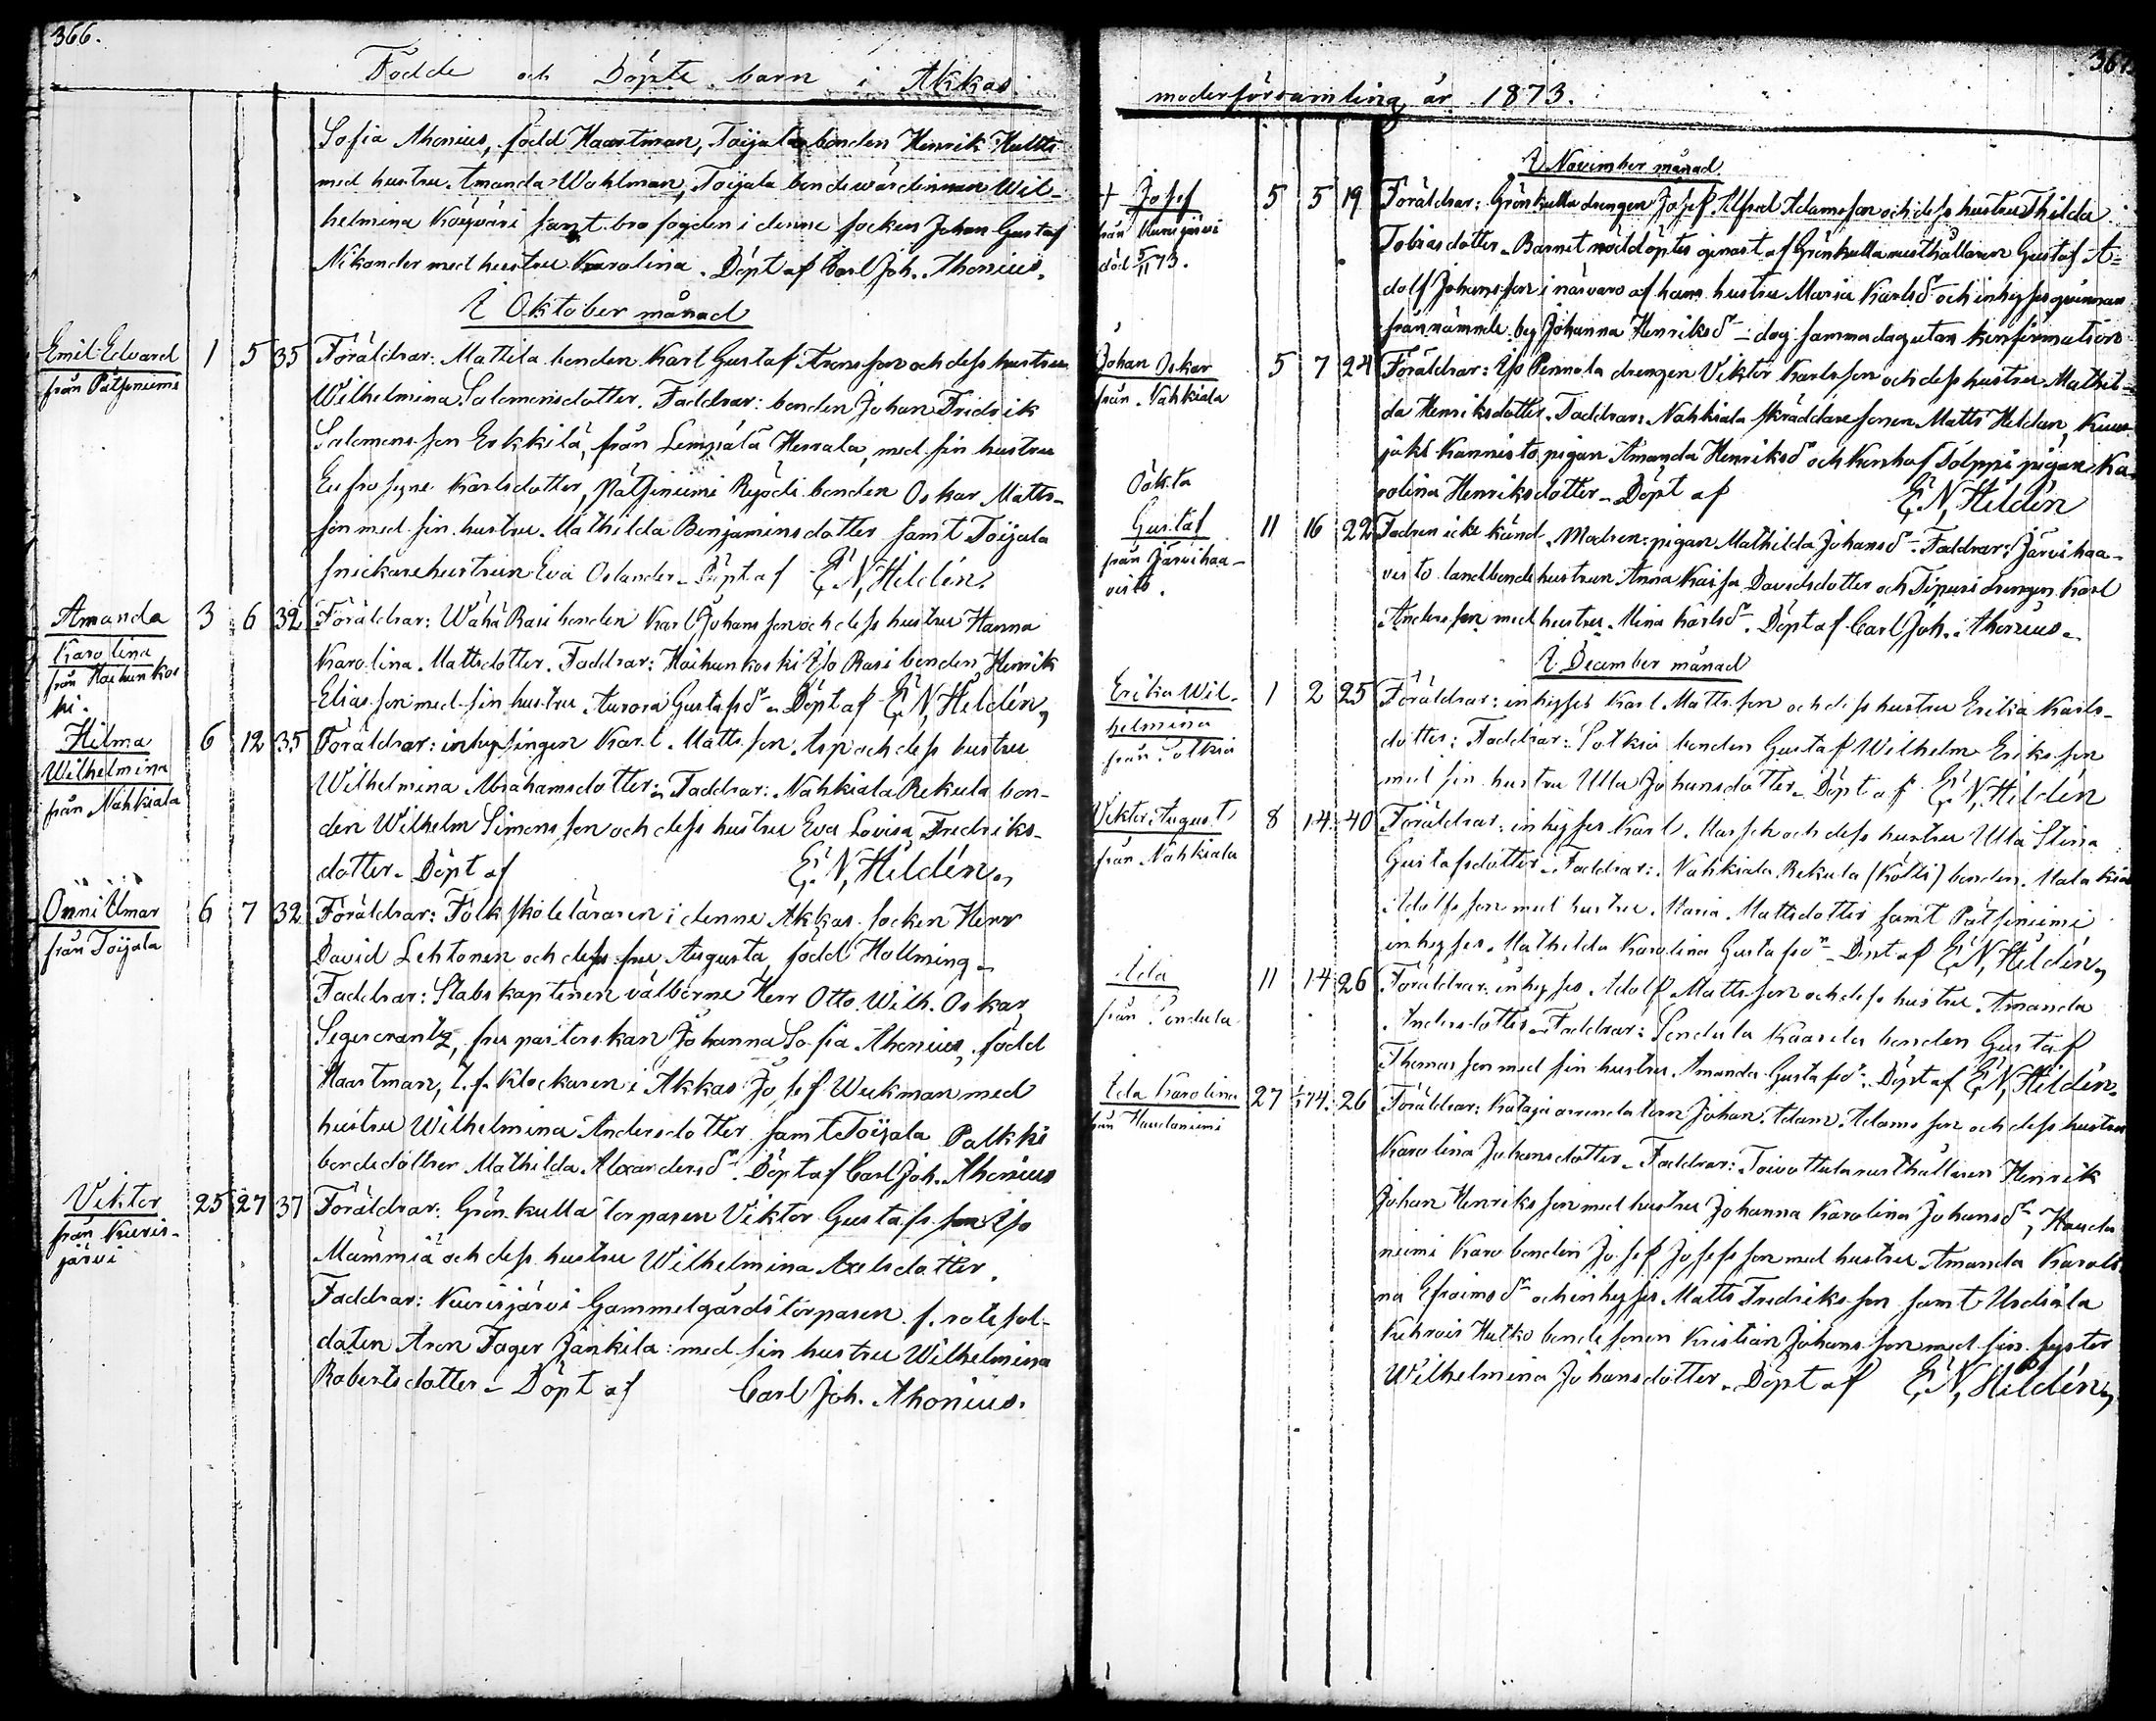 366.
Födde och Döpte barn i Akkas
Sofia Ahonius, född Haartman, Toijala bonden Henrik Hultti
med hustru Amanda Wahlman, Toijala bondewärdinnan Wil-
helmina samt brofogden i denne socken Johan Gustaf
Nikander med hustru Karolina. Döpt af Carl Joh. Ahonius.
I Oktober månad
Emil Edvard 1 5 35 Föräldrar: Mattila bonden Karl Gustaf Aronsson och dess hustru
från Pätsiniemi
Wilhelmina Salomonsdotter. Faddrar: bonden Johan Fredrik
Salomonsson Erkkilä, från Lempälä Herrala, med sin hustru
Eufrosyne Karlsdotter, Pätsiniemi bonden Oskar Matts-
son med sin hustru Mathilda Benjaminsdotter samt Toijala
snickarehustrun Eva Oslander. Döpt af E. N. Hildén.
Amanda 3 6 32 Föräldrar: Wähä Rasi bonden Karl Johansson och dess hustru Hanna
Karolina
från Haihunkos
ki.
Karolina Mattsdotter. Faddrar: Haihunkoski Yso Rasi bonden Henrik
Eliasson med sin hustru Aurora Gustafsdr. Döpt af E. N. Hildén,
Hilma 6 12 35 Föräldrar: inhysingen Karl Mattsson och dess hustru
Wilhelmina
från Nahkiala
Wilhelmina Abrahamsdotter. Faddrar: Nahkiala Rekula bon-
den Wilhelm Simonsson och dess hustru Eva Lovisa Fredriks-
dotter. Döpt af E. N. Hildén,
Onni Ilmar 6 7 32 Föräldrar: Folkskoleläraren i denne Akkas socken Herr
från Toijala
David Lehtonen och dess fru Augusta, född Hollming.
Faddrar: Stabskaptenen välborne Herr Otto Wilh. Oskar
Segercrantz, fru pastorskan Johanna Sofia Ahonius, född
Haartman, t. f. Klockaren i Akkas Josef Wukman med
hustru Wilhelmina Andersdotter samt Toijala Palkki
bondedottren Mathilda Alexandersdr. Döpt af Carl Joh. Ahonius
Viktor 25 27 37 Föräldrar: Grönkulla torparen Viktor Gustafsson Yso
från Kuris-
järvi
Mämmiä och dess hustru Wilhelmina Axelsdotter.
Faddrar: Kurisjärvi Gammelgårds torparen f. rotesol-
daten Aron Fager Jankila med sin hustru Wilhelmina
Robertsdotter. Döpt af Carl Joh. Ahonius.
367.
moderförsamling, år 1873.
I November månad
+ Josef 5 5 19 Föräldrar: Grönkulla drengen Josef Alfred Adamsson och dess hustru Thilda
från Kurisjärvi
död 5/11 73.
Tobiasdotter. Barnet nöddöptes genast af Grönkulla rusthållaren Gustaf A-
dolf Johansson i närvaro af hans hustru Maria Karlsdr och inhyses qvinnan
från nämnde by Johanna Henriksdr - dog samma dag utan konfirmation
Johan Oskar 5 7 24 Föräldrar: Yso Pennola drengen Viktor Karlsson och dess hustru Mathil-
från Nahkiala
da Henriksdotter. Faddrar: Nahkiala skräddaresonen Matts Heldan,
Kannisto pigan Amanda Henriksdr och pigan Ka-
rolina Henriksdotter. Döpt af E. N. Hildén
Oäkta
Gustaf 11 16 22 Fadren icke känd. Modren: pigan Mathilda Johansdr. Faddrar: Järvihaa-
från Järvihaa-
visto.
visto landbondehustrun Anna Kaisa Davidsdotter och drengen Karl
Andersson med hustru Mina Karlsdr. Döpt af Carl Joh. Ahonius.
I December månad
Erika Wil- 1 2 25 Föräldrar: inhyses Karl Mattsson och dess hustru Erika Karls-
helmina
från Sotkia
dotter. Faddrar: Sotkia bonden Gustaf Wilhelm Eriksson
med sin hustru Ulla Johansdotter. Döpt af E. N. Hildén
Viktor August 8 14 40 Föräldrar: inhyses Karl och dess hustru Ulla Stina
från Nahkiala
Gustafsdotter. Faddrar: Nahkiala Rekula (Kölli) bonden Malakias
Adolfsson med hustru Maria Mattsdotter samt Pätsiniemi
inhyses Mathilda Karolina Gustafsdr. Döpt af E. N. Hildén,
Ida 11 14 26 Föräldrar: inhyses Adolf Mattsson och dess hustru Amanda
från Sondula
Andersdotter. Faddrar: Sondula Kaarela bonden Gustaf
Thomasson med sin hustru Amanda Gustafsdr. Döpt af E. N. Hildén.
Ida Karolina 27 1/1 74. 26 Föräldrar: Kataja arrendatorn Johan Adam Adamsson och dess hustru
från Haudaniemi
Karolina Johansdotter. Faddrar: Toivottula rusthållaren Henrik
Johan Henriksson med hustru Johanna Karolina Johansdr, Hauda
niemi Karo bonden Josef Josefsson med hustru Amanda Karoli-
na Efraimsdr och inhyses Matts Fredriksson samt Urdiala
Hutko bondesonen Kristian Johansson med sin syster
Wilhelmina Johansdotter. Döpt af E. N. Hildén,